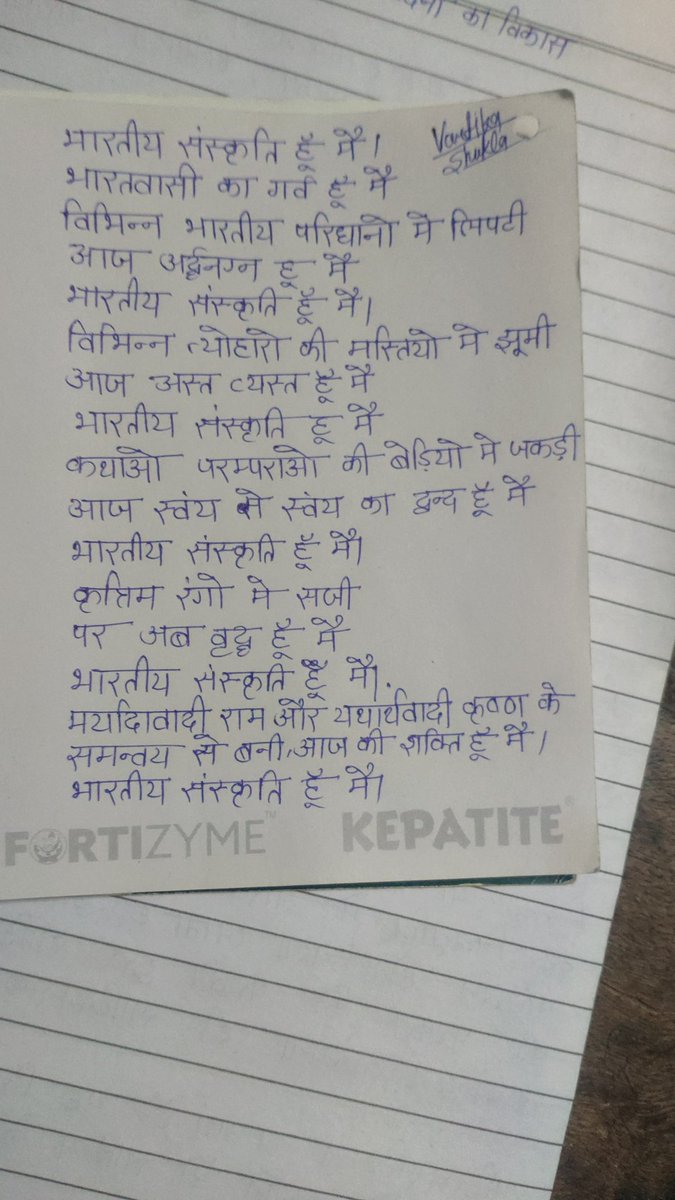 का विकास
Vartika
Shukla
भारतीय संस्कृति हूँ मै।
भारतवासी का गर्व हूँ मै
विभिन्न भारतीय परिधानो मे लिपटी
आज अर्द्धनग्न हू मै
भारतीय संस्कृति हूँ मै।
विभिन्न त्योहारो की मस्तियो मे झूमी
आज अस्त व्यस्त हूँ मै
भारतीय संस्कृति हू मै
कथाओ परम्पराओ की बेड़ियो मे जकड़ी
आज स्वंय से स्वंय का द्वन्द हूँ मै
भारतीय संस्कृति हूँ मै।
कृत्तिम रंगो मे सजी
पर अब वृद्ध हूँ मै
भारतीय संस्कृति हूँ मै।
मर्यादावादी राम और यथार्थवादी कृष्ण के
समन्वय से बनी, आज की शक्ति हूँ मै।
भारतीय संस्कृति हूँ मै।
FORTIZYME™ KEPATITE®